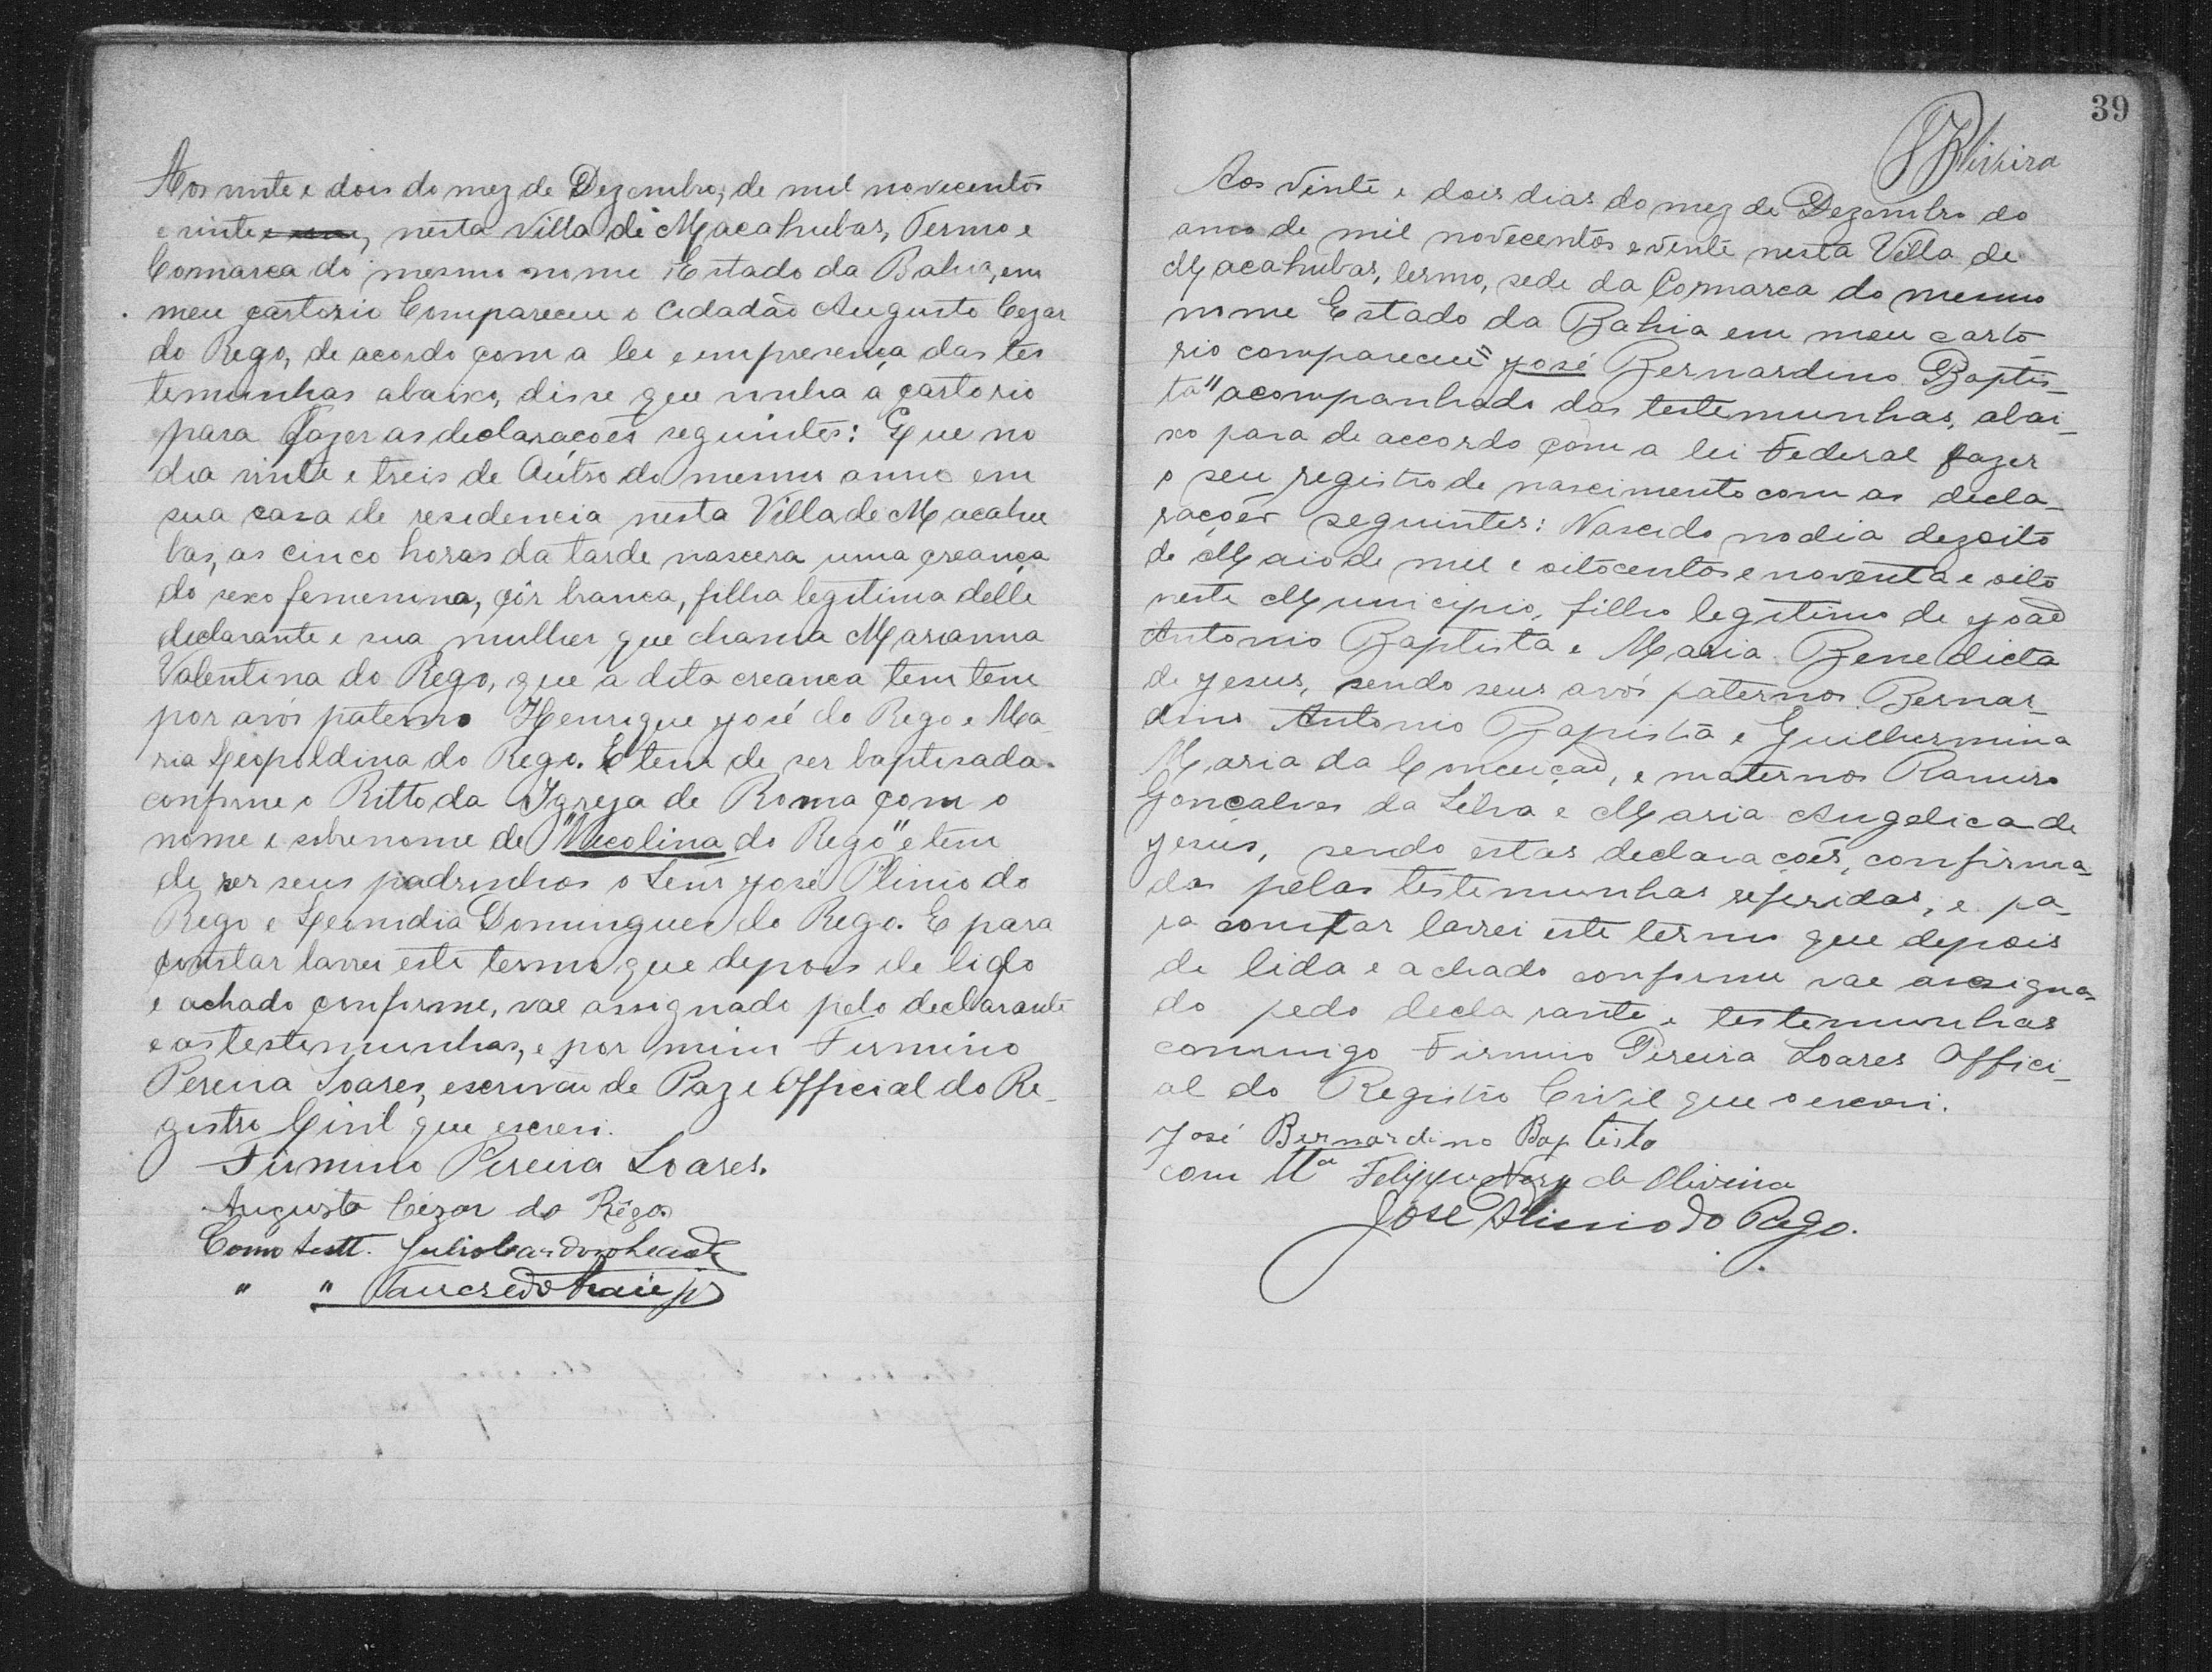 Aos vinte e dois do mez de Dezembro, de mil novecentos
e vinte, nesta Villa de Macahubas, Termo e
Comarca do mesmo nome Estado da Bahia, em
meu cartorio Compareceu o Cidadão Augusto Cezar
do Rego, de acordo com a lei e em presença das tes
temunhas abaixo, disse que vinha a cartorio
para fazer as declarações seguintes: Que no
dia vinte e treis de Outro do mesmo anno em
sua casa de residencia nesta Villa de Macahu
bas, as cinco horas da tarde nascera uma creança
do sexo femenino, côr branca, filha legitima delle
declarante e sua mulher que chama Marianna
Valentina do Rego, que a dita creanca tem tem
por avós paterno Henrique José do Rego e Ma
ria Leopoldina do Rego. E tem de ser baptisada
conforme o Ritto da Igreja de Roma com o
nome e sobrenome de "Nicolina do Rego" e tem
de ser seus padrinhos o Senr José Plinio do
Rego e Leonidia Domingues do Rego. E para
constar lavrei este termo que depois de lido
e achado conforme, vae assignado pelo declarante
e as testemunhas, e por mim Firmino
Pereira Soares, escrivão de Paz e Official do Re-
gistro Civil que escrevi.
Firmino Pereira Soares.
Augusto Cézar do Rêgo
Como testt.
" " Tancredo
39
Aos vinte e dois dias do mez de Dezembro do
anno de mil novecentos e vinte nesta Villa de
Macahubas, termo, sede da Comarca do mesmo
nome Estado da Bahia em meu carto
rio compareceu "José Bernardino Baptis-
ta" acompanhado das testemunhas, abai-
xo para de accordo com a lei Federal fazer
o seu registro de nascimento com as decla-
rações seguintes: Nascido no dia dezoito
de Maio de mil e oitocentos e noventa e oito
neste Municipio, filho legitimo de João
Antonio Baptista e Maria Benedicta
de Jesus, sendo seus avós paternos Bernar-
dino Antonio Bapista e Guilhermina
Maria da Conceição, e maternos Ramiro
Gonçalves da Silva e Maria Angelica de
Jesus, sendo estas declarações, confirma-
das pelas testemunhas referidas, e pa-
ra constar lavrei este termo que depois
de lida e achado conforme vae assigna-
do pedo declarante e testemunhas
commigo Firmino Pereira Soares Offici-
al do Registro Civil que o escrevi.
José Bernardino Baptista
com Felippe Nery de Oliveira
José Plinio do Rego.